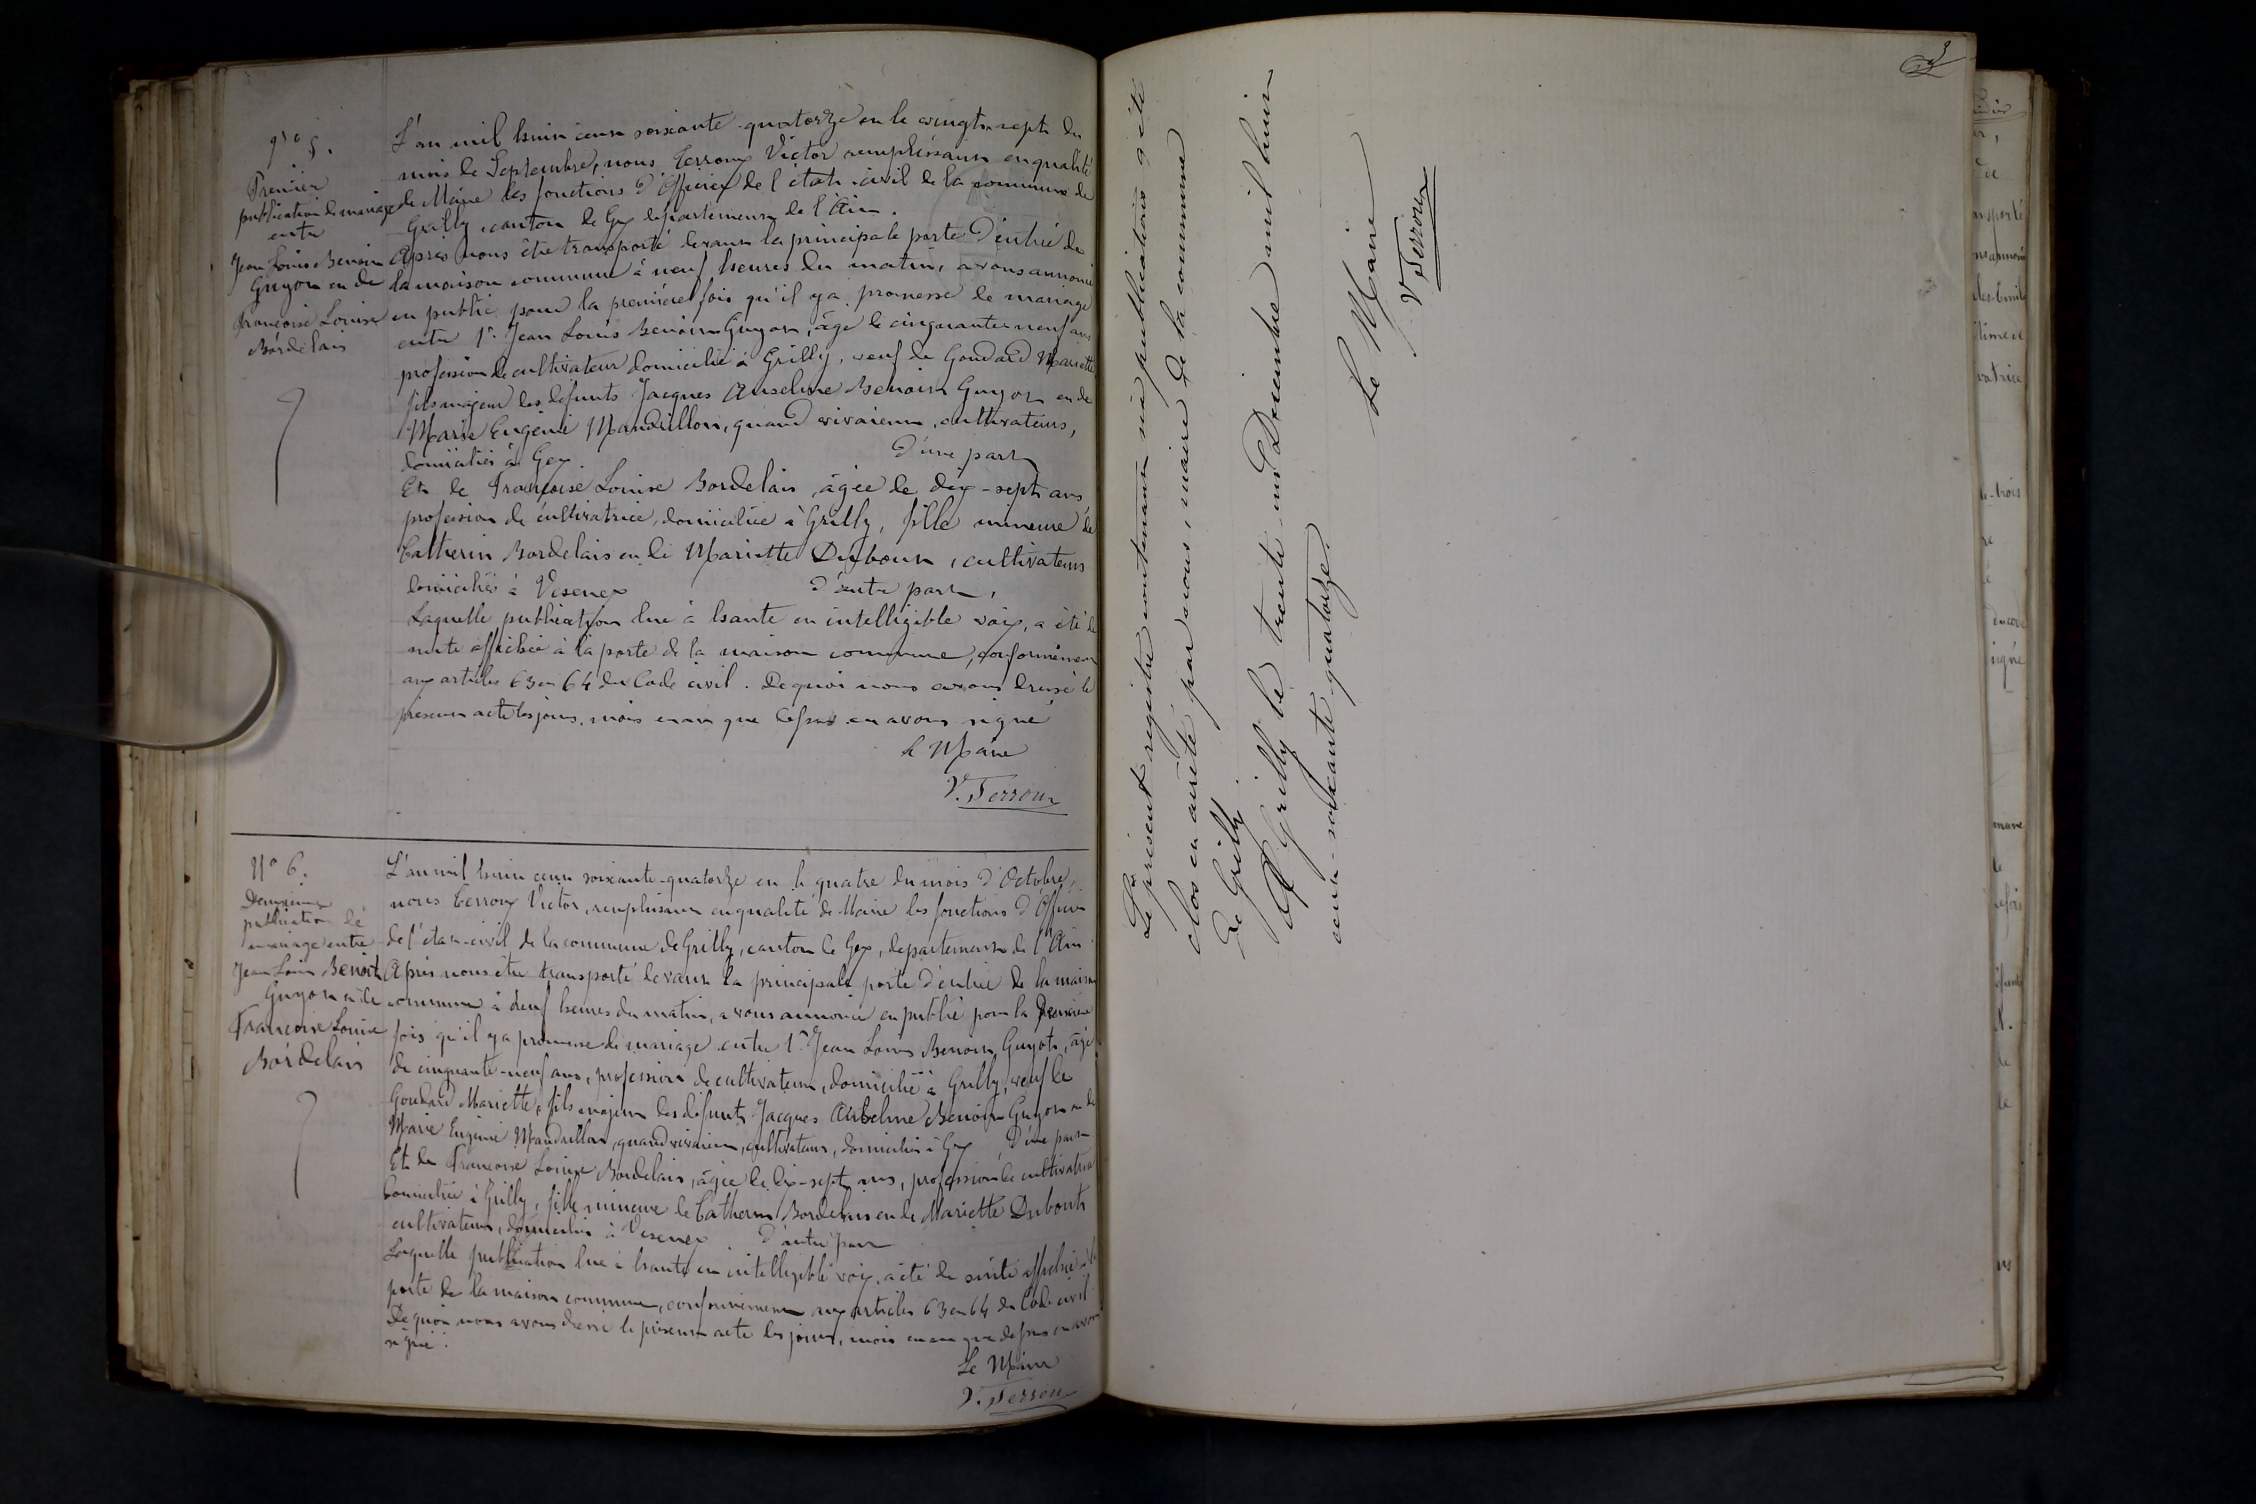 N° 5.
Premier
publication de mariage
entre
Jean Louis Benoit
Guyon et de
Françoise Louise
Bordelais
L'an mil huit cent soixante-quatorze et le vingt-sept du
mois de Septembre, nous Terroux Victor remplissant en qualité
de Maire les fonctions d'Officier de l'état-civil de la commune de
Grilly, canton de Gex département de l'Ain.
Après nous être transporté devant la principale porte d'entrée de
la maison commune à neuf heures du matin, avons annoncé
en public pour la première fois qu'il y a promesse de mariage
entre 1° Jean Louis Benoit Guyon, âgé de cinquante-neuf ans
profession de cultivateur domicilié à Grilly, veuf de Goudard Mariette
fils majeur des défunts Jacques Anselme Benoit Guyon et de
Marie Eugénie Mandrillon, quand vivaient, cultivateurs,
domiciliés à Gex d'une part
Et de Françoise Louise Bordelais, âgée de dix-sept ans
profession de cultivatrice, domiciliée à Grilly, fille mineure de
Catherin Bordelais et de Mariette Dubout, cultivateurs
domiciliés à Vesenex d'autre part,
Laquelle publication lue à haute et intelligible voix, a été de
suite affichée à la porte de la maison commune, conformément
aux articles 63 et 64 du Code civil. De quoi nous avons dressé le
présent acte les jours, mois et an que dessus et avons signé
le Maire
V. Terroux
N° 6.
Deuxième
publication de
mariage entre
Jean Louis Benoit
Guyon et de
Françoise Louise
Bordelais
L'an mil huit cent soixante-quatorze et le quatre du mois d'Octobre,
nous Terroux Victor, remplissant en qualité de Maire les fonctions d'Officier
de l'état-civil de la commune de Grilly, canton de Gex, département de l'Ain
Après nous être transporté devant la principale porte d'entrée de la maison
commune à neuf heures du matin, avons annoncé en public pour la Deuxième
fois qu'il y a promesse de mariage entre 1° Jean Louis Benoit Guyon, âgé
de cinquante-neuf ans, profession de cultivateur, domicilié à Grilly, veuf de
Goudard Mariette, fils majeur des défunts Jacques Anselme Benoit Guyon et de
Marie Eugénie Mandrillon, quand vivaient, cultivateurs, domiciliés à Gex D'une part
Et de Françoise Louise Bordelais, âgée de dix-sept ans, profession de cultivatrice
domiciliée à Grilly, fille mineure de Catherin Bordelais et de Mariette Dubout
cultivateurs, domiciliés à Vesenex. d'autre part
Laquelle publication lue à haute et intelligible voix, a été de suite affichée à la
porte de la maison commune, conformément aux articles 63 et 64 du Code civil
De quoi nous avons dressé le présent acte les jours, mois et an que dessus et avons
signé.
Le Maire
V. Terroux
3
Le présent registre contenant six publications a été
clos et arrêté par nous, maire de la commune
de Grilly.
A Grilly le trente-un Décembre mil huit
cent-soixante-quatorze.
Le Maire
V Terroux